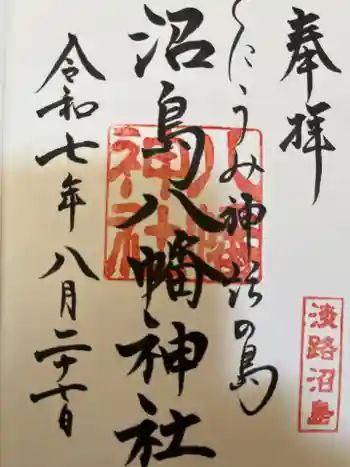 奉拝
淡路沼島
くにうみ神話の島
沼島八幡神社
八幡
神社
令和七年八月二十七日